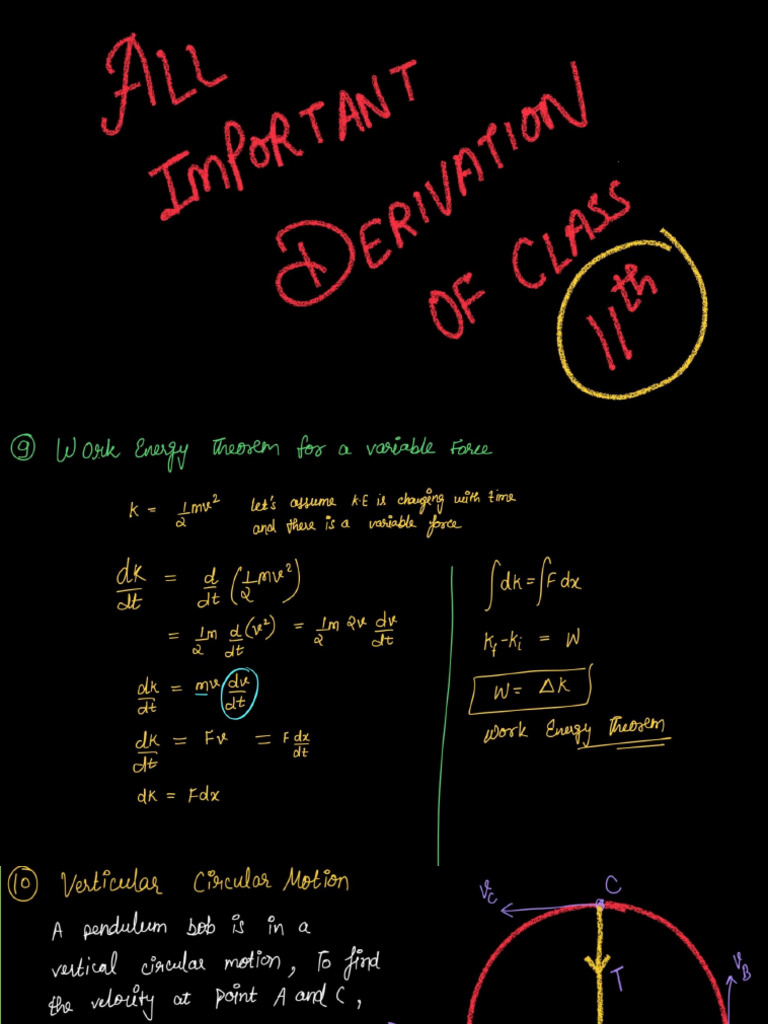 ALL
IMPORTANT
DERIVATION
OF CLASS
11th
9 Work Energy Theorem for a variable Force
K = 1/2 mv² let's assume K.E is changing with time
and there is a variable force
dK/dt = d/dt (1/2 mv²)
= 1/2 m d/dt (v²) = 1/2 m 2v dv/dt
dK/dt = mv dv/dt
dK/dt = Fv = F dx/dt
dK = Fdx
∫dK = ∫F dx
Kf - Ki = W
W = ΔK
Work Energy Theorem
10 Verticular Circular Motion
A pendulum bob is in a
vertical circular motion, To find
the velocity at point A and C,
C
vC
T
vB